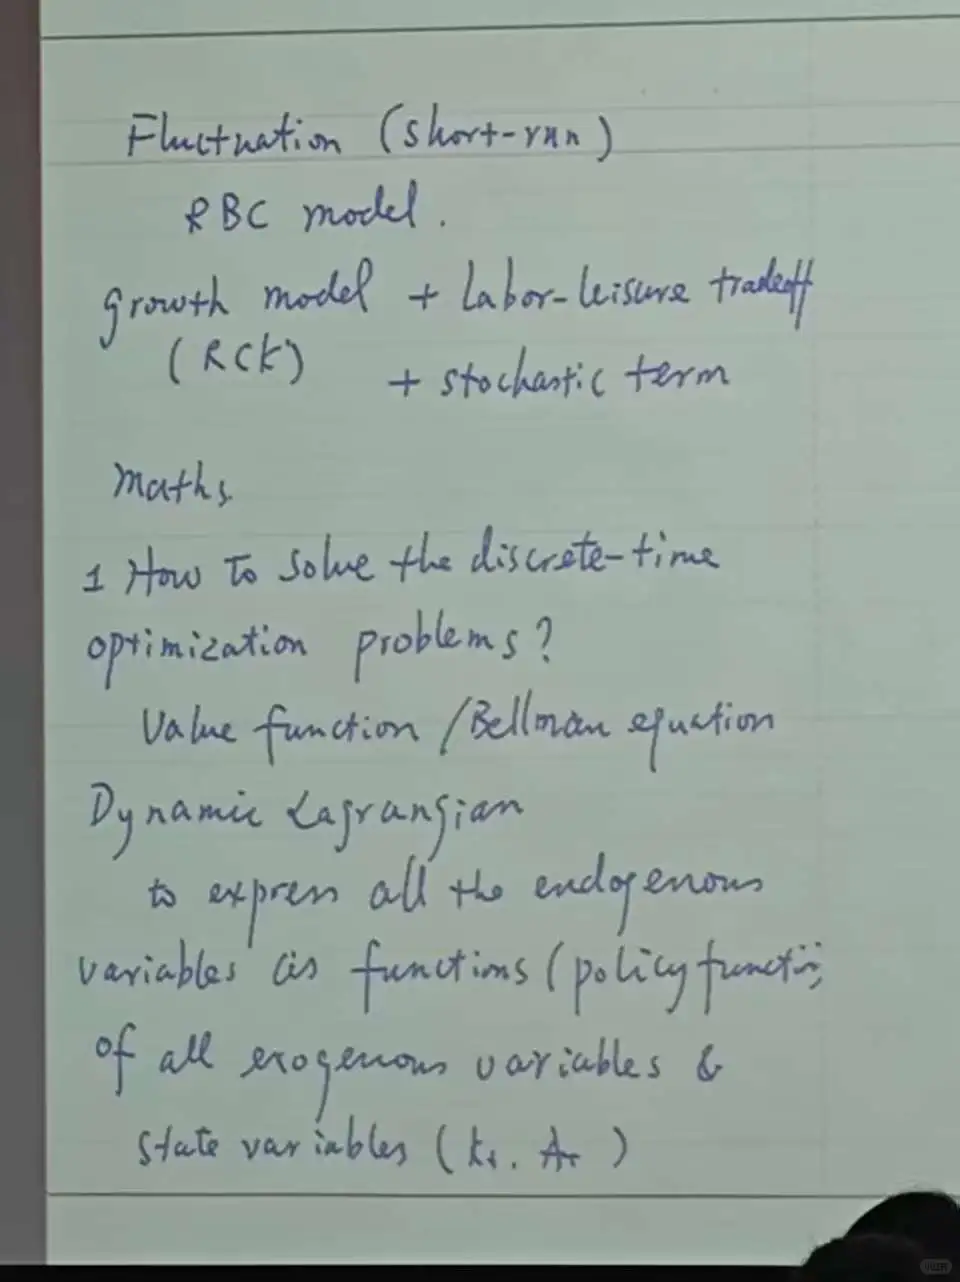 Fluctuation (short-run)
RBC model.
growth model + Labor-leisure tradeoff
(RCK)
+ stochastic term
Maths.
1 How to solve the discrete-time
optimization problems?
Value function / Bellman equation
Dynamic Lagrangian
to express all the endogenous
variables as functions (policy function
of all exogenous variables &
state variables (kt, At)